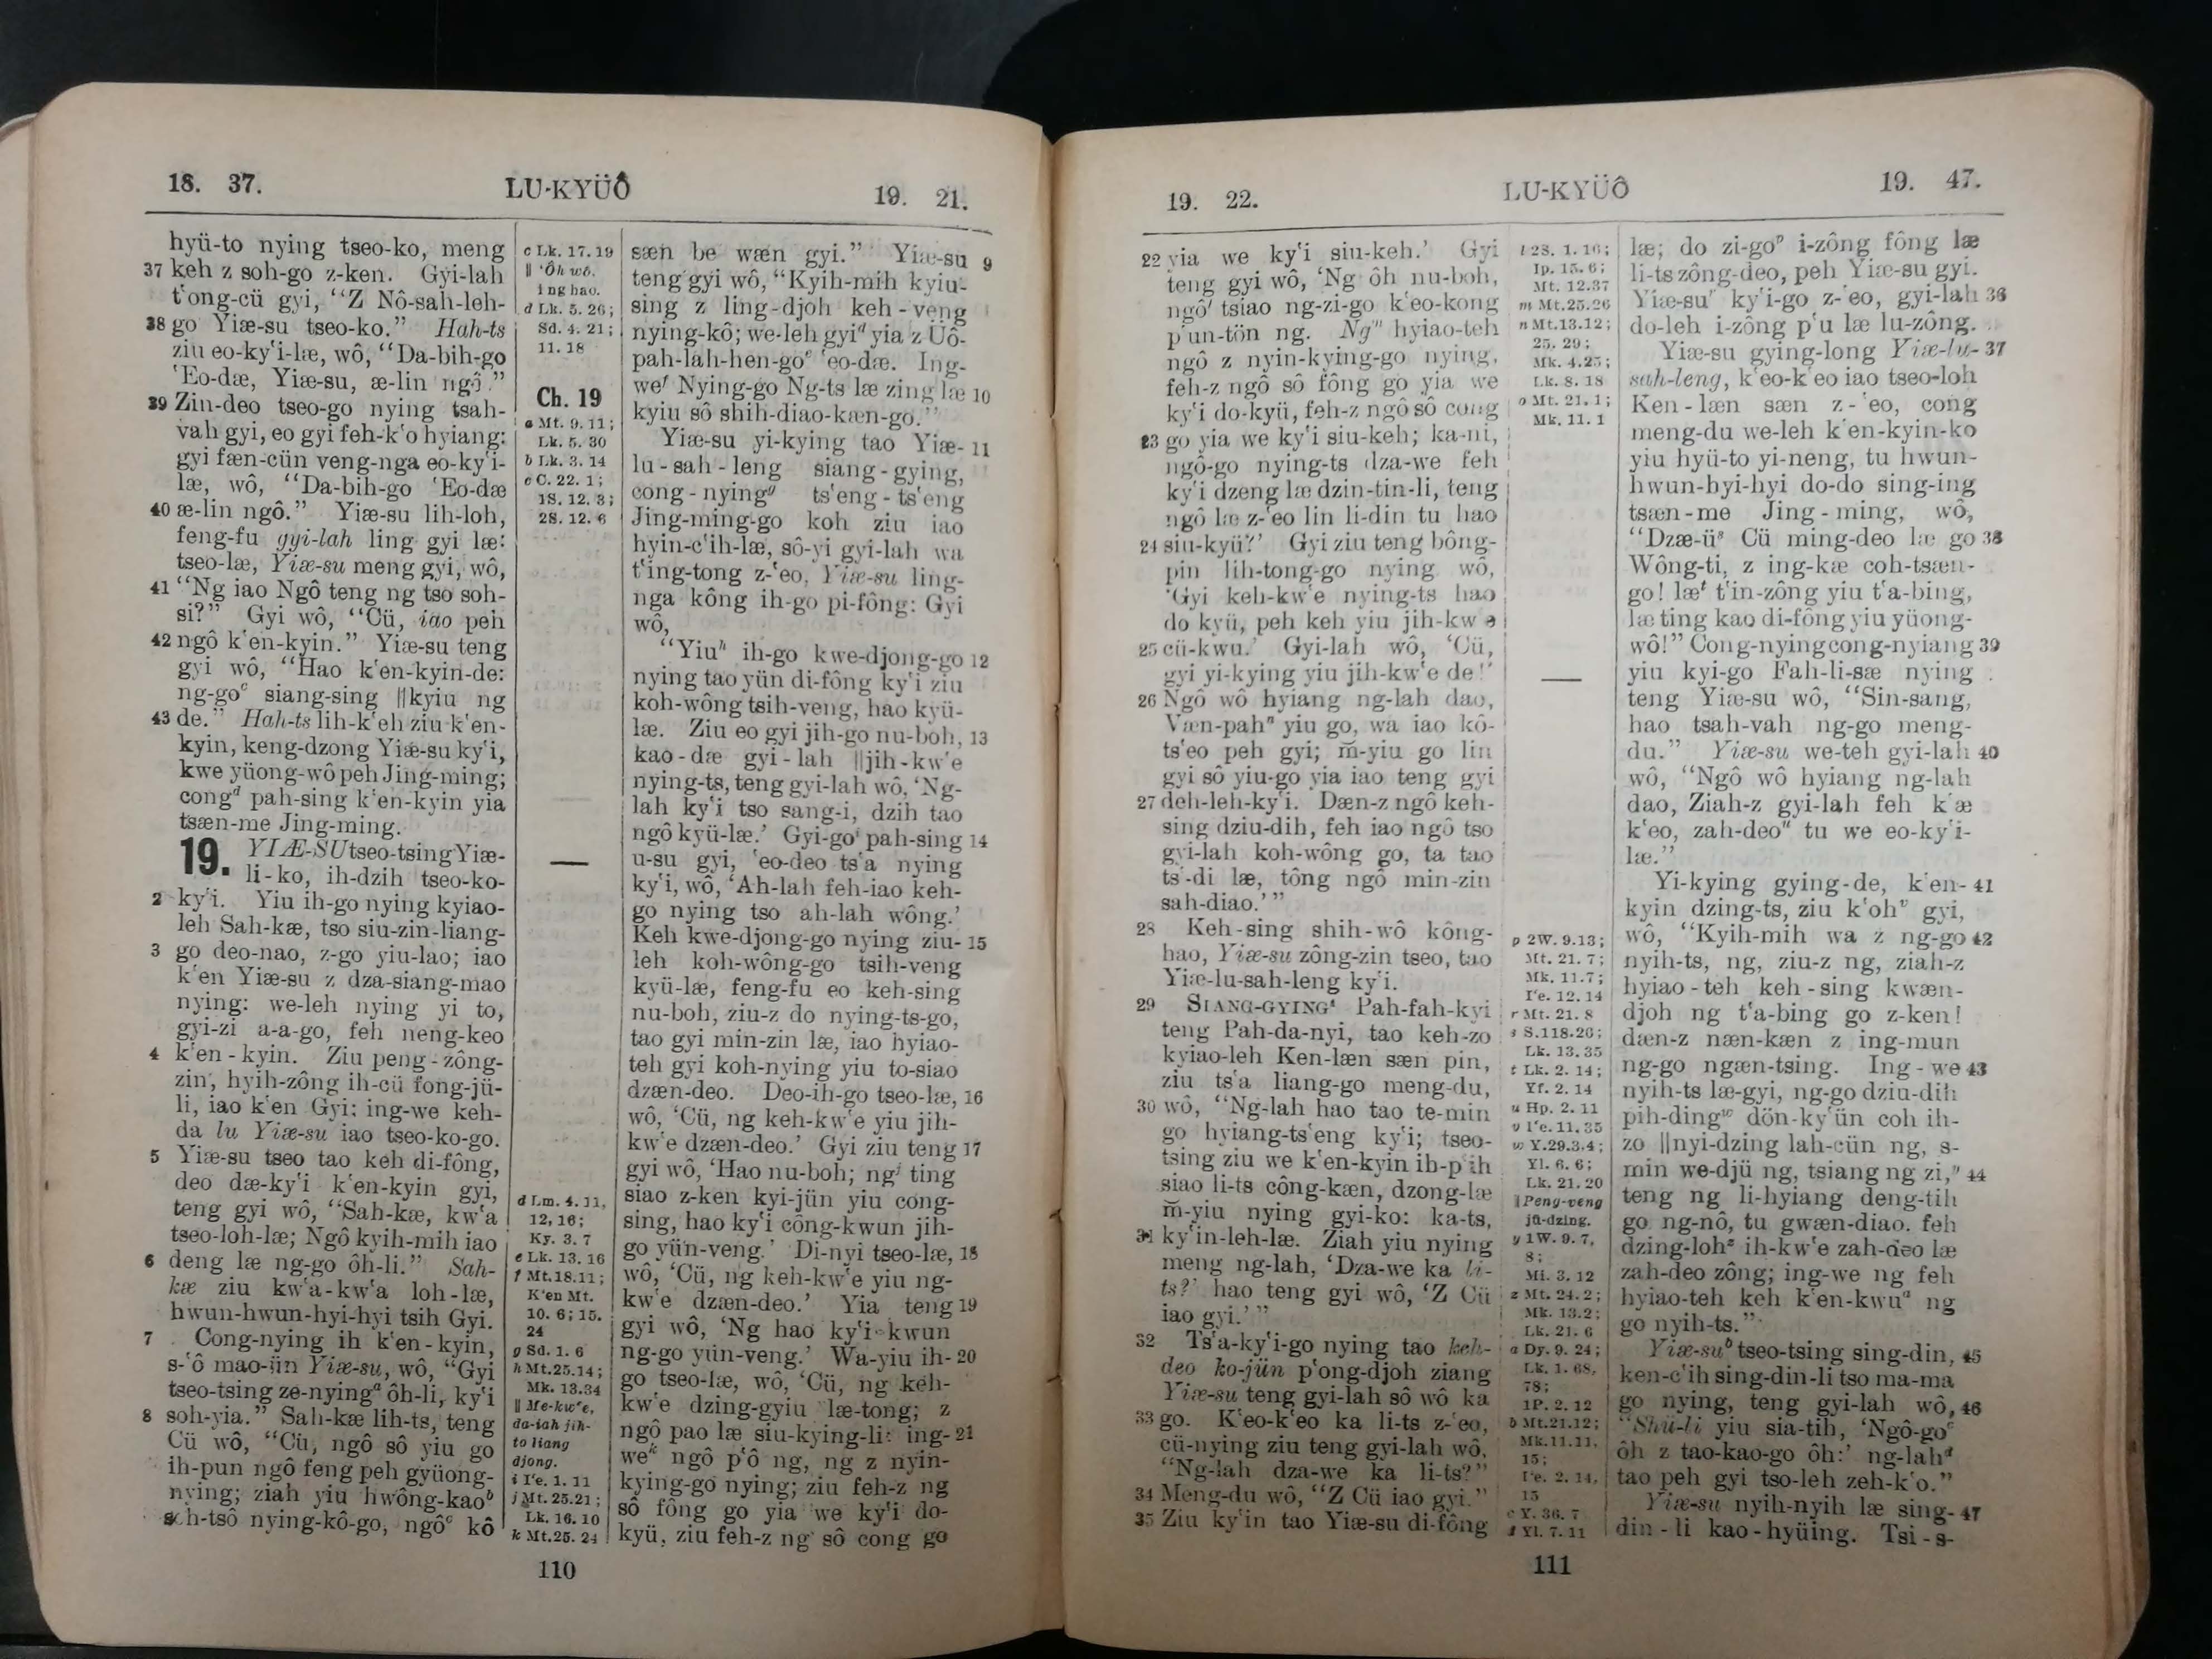 18. 37. LU-KYÜÔ 19. 21.
hyü-to nying tseo-ko, meng
37 keh z soh-go z-ken. Gyi-lah
t‘ong-cü gyi, “Z Nô-sah-leh-
38 go Yiæ-su tseo-ko.” Hah-ts
ziu eo-ky‘i-læ, wô, “Da-bih-go
‘Eo-dæ, Yiæ-su, æ-lin ngô.”
39 Zin-deo tseo-go nying tsah-
vah gyi, eo gyi feh-k‘o hyiang:
gyi fæn-cün veng-nga eo-ky‘i-
læ, wô, “Da-bih-go ‘Eo-dæ
40 æ-lin ngô.” Yiæ-su lih-loh,
feng-fu gyi-lah ling gyi læ:
tseo-læ, Yiæ-su meng gyi, wô,
41 “Ng iao Ngô teng ng tso soh-
si?” Gyi wô, “Cü, iao peh
42 ngô k‘en-kyin.” Yiæ-su teng
gyi wô, “Hao k‘en-kyin-de:
ng-go c siang-sing ||kyiu ng
43 de.” Hah-ts lih-k‘eh ziu k‘en-
kyin, keng-dzong Yiæ-su ky‘i,
kwe yüong-wô peh Jing-ming;
cong d pah-sing k‘en-kyin yia
tsæn-me Jing-ming.
19. YIÆ-SU tseo-tsing Yiæ-
li-ko, ih-dzih tseo-ko-
2 ky‘i. Yiu ih-go nying kyiao-
leh Sah-kæ, tso siu-zin-liang-
3 go deo-nao, z-go yiu-lao; iao
k‘en Yiæ-su z dza-siang-mao
nying: we-leh nying yi to,
gyi-zi a-a-go, feh neng-keo
4 k‘en-kyin. Ziu peng-zông-
zin, hyih-zông ih-cü fong-jü-
li, iao k‘en Gyi: ing-we keh-
da lu Yiæ-su iao tseo-ko-go.
5 Yiæ-su tseo tao keh di-fông,
deo dæ-ky‘i k‘en-kyin gyi,
teng gyi wô, “Sah-kæ, kw‘a
tseo-loh-læ; Ngô kyih-mih iao
6 deng læ ng-go ôh-li.” Sah-
kæ ziu kw‘a-kw‘a loh-læ,
hwun-hwun-hyi-hyi tsih Gyi.
7 Cong-nying ih k‘en-kyin,
s-‘ô mao-ün Yiæ-su, wô, “Gyi
tseo-tsing ze-nying a ôh-li, ky‘i
8 soh-yia.” Sah-kæ lih-ts, teng
Cü wô, “Cü, ngô sô yiu go
ih-pun ngô feng peh gyüong-
nying; ziah yiu hwông-kao b
ah-tsô nying-kô-go, ngô c kô
c Lk. 17.19
|| ‘Ôh wô.
ing hao.
d Lk. 5. 26;
Sd. 4. 21;
11. 18
Ch. 19
a Mt. 9. 11;
Lk. 5. 30
b Lk. 3. 14
c C. 22. 1;
1S. 12. 3;
2S. 12. 6
d Lm. 4. 11,
12, 16;
Ky. 3. 7
e Lk. 13. 16
f Mt. 18.11;
K‘en Mt.
10. 6; 15.
24
g Sd. 1. 6
h Mt.25.14;
Mk. 13.34
|| Me-kw‘e,
da-iah jih-
to liang
djong.
i I‘e. 1. 11
j Mt. 25.21;
Lk. 16. 10
k Mt.25. 24
sæn be wæn gyi.” Yiæ-su 9
teng gyi wô, “Kyih-mih kyiu-
sing z ling-djoh keh-veng
nying-kô; we-leh gyi d yia z Üô-
pah-lah-hen-go e ‘eo-dæ. Ing-
we f Nying-go Ng-ts læ zing læ 10
kyiu sô shih-diao-kæn-go.”
Yiæ-su yi-kying tao Yiæ- 11
lu-sah-leng siang-gying,
cong-nying g ts‘eng-ts‘eng
Jing-ming-go koh ziu iao
hyin-c‘ih-læ, sô-yi gyi-lah wa
t‘ing-tong z-‘eo, Yiæ-su ling-
nga kông ih-go pi-fông: Gyi
wô,
“Yiu h ih-go kwe-djong-go 12
nying tao yün di-fông ky‘i ziu
koh-wông tsih-veng, hao kyü-
læ. Ziu eo gyi jih-go nu-boh, 13
kao-dæ gyi-lah ||jih-kw‘e
nying-ts, teng gyi-lah wô, ‘Ng-
lah ky‘i tso sang-i, dzih tao
ngô kyü-læ.’ Gyi-go i pah-sing 14
u-su gyi, ‘eo-deo ts‘a nying
ky‘i, wô, ‘Ah-lah feh-iao keh-
go nying tso ah-lah wông.’
Keh kwe-djong-go nying ziu- 15
leh koh-wông-go tsih-veng
kyü-læ, feng-fu eo keh-sing
nu-boh, ziu-z do nying-ts-go,
tao gyi min-zin læ, iao hyiao-
teh gyi koh-nying yiu to-siao
dzæn-deo. Deo-ih-go tseo-læ, 16
wô, ‘Cü, ng keh-kw‘e yiu jih-
kw‘e dzæn-deo.’ Gyi ziu teng 17
gyi wô, ‘Hao nu-boh; ng j ting
siao z-ken kyi-jün yiu cong-
sing, hao ky‘i công-kwun jih-
go yün-veng.’ Di-nyi tseo-læ, 18
wô, ‘Cü, ng keh-kw‘e yiu ng-
kw‘e dzæn-deo.’ Yia teng 19
gyi wô, ‘Ng hao ky‘i kwun
ng-go yün-veng.’ Wa-yiu ih- 20
go tseo-læ, wô, ‘Cü, ng keh-
kw‘e dzing-gyiu læ-tong; z
ngô pao læ siu-kying-li: ing- 21
we k ngô p‘ô ng, ng z nyin-
kying-go nying; ziu feh-z ng
sô fông go yia we ky‘i do-
kyü, ziu feh-z ng sô cong go
110
19. 22. LU-KYÜÔ 19. 47.
22 yia we ky‘i siu-keh.’ Gyi
teng gyi wô, ‘Ng ôh nu-boh,
ngô l tsiao ng-zi-go k‘eo-kong
p‘un-tön ng. Ng m hyiao-teh
ngô z nyin-kying-go nying,
feh-z ngô sô fông go yia we
ky‘i do-kyü, feh-z ngô sô cong
23 go yia we ky‘i siu-keh; ka-ni,
ngô-go nying-ts dza-we feh
ky‘i dzeng læ dzin-tin-li, teng
ngô læ z-‘eo lin li-din tu hao
24 siu-kyü?’ Gyi ziu teng bông-
pin lih-tong-go nying wô,
‘Gyi keh-kw‘e nying-ts hao
do kyü, peh keh yiu jih-kw‘e
25 cü-kwu.’ Gyi-lah wô, ‘Cü,
gyi yi-kying yiu jih-kw‘e de!’
26 Ngô wô hyiang ng-lah dao,
Væn-pah n yiu go, wa iao kô-
ts‘eo peh gyi; m̆-yiu go lin
gyi sô yiu-go yia iao teng gyi
27 deh-leh-ky‘i. Dæn-z ngô keh-
sing dziu-dih, feh iao ngô tso
gyi-lah koh-wông go, ta tao
ts‘-di læ, tông ngô min-zin
sah-diao.’ ”
28 Keh-sing shih-wô kông-
hao, Yiæ-su zông-zin tseo, tao
Yiæ-lu-sah-leng ky‘i.
29 SIANG-GYING o Pah-fah-kyi
teng Pah-da-nyi, tao keh-zo
kyiao-leh Ken-læn sæn pin,
ziu ts‘a liang-go meng-du,
30 wô, “Ng-lah hao tao te-min
go hyiang-ts‘eng ky‘i; tseo-
tsing ziu we k‘en-kyin ih-p‘ih
siao li-ts công-kæn, dzong-læ
m̆-yiu nying gyi-ko: ka-ts,
31 ky‘in-leh-læ. Ziah yiu nying
meng ng-lah, ‘Dza-we ka li-
ts?’ hao teng gyi wô, ‘Z Cü
iao gyi.’ ”
32 Ts‘a-ky‘i-go nying tao keh-
deo ko-jün p‘ong-djoh ziang
Yiæ-su teng gyi-lah sô wô ka
33 go. K‘eo-k‘eo ka li-ts z-‘eo,
cü-nying ziu teng gyi-lah wô,
“Ng-lah dza-we ka li-ts?”
34 Meng-du wô, “Z Cü iao gyi.”
35 Ziu ky‘in tao Yiæ-su di-fông
l 2S. 1. 16;
Ip. 15. 6;
Mt. 12.37
m Mt.25.26
n Mt.13.12;
25. 29;
Mk. 4.25;
Lk. 8. 18
o Mt. 21. 1;
Mk. 11. 1
p 2W. 9.13;
Mt. 21. 7;
Mk. 11.7;
I‘e. 12. 14
r Mt. 21. 8
s S.118.26;
Lk. 13. 35
t Lk. 2. 14;
Yf. 2. 14
u Hp. 2. 11
v I‘e. 11. 35
w Y.29.3,4;
Yl. 6. 6;
Lk. 21. 20
|| Peng-veng
jü-dzing.
y 1W. 9. 7,
8;
Mi. 3. 12
z Mt. 24. 2;
Mk. 13.2;
Lk. 21. 6
a Dy. 9. 24;
Lk. 1. 68,
78;
1P. 2. 12
b Mt.21.12;
Mk.11.11,
15;
I‘e. 2. 14,
15
c Y. 36. 7
d Yl. 7. 11
læ; do zi-go p i-zông fông læ
li-ts zông-deo, peh Yiæ-su gyi.
Yiæ-su r ky‘i-go z-‘eo, gyi-lah 36
do-leh i-zông p‘u læ lu-zông.
Yiæ-su gying-long Yiæ-lu- 37
sah-leng, k‘eo-k‘eo iao tseo-loh
Ken-læn sæn z-‘eo, cong
meng-du we-leh k‘en-kyin-ko
yiu hyü-to yi-neng, tu hwun-
hwun-hyi-hyi do-do sing-ing
tsæn-me Jing-ming, wô,
“Dzæ-ü s Cü ming-deo læ go 38
Wông-ti, z ing-kæ coh-tsæn-
go! læ t t‘in-zông yiu t‘a-bing,
læ ting kao di-fông yiu yüong-
wô!” Cong-nying cong-nyiang 39
yiu kyi-go Fah-li-sæ nying
teng Yiæ-su wô, “Sin-sang,
hao tsah-vah ng-go meng-
du.” Yiæ-su we-teh gyi-lah 40
wô, “Ngô wô hyiang ng-lah
dao, Ziah-z gyi-lah feh k‘æ
k‘eo, zah-deo u tu we eo-ky‘i-
læ.”
Yi-kying gying-de, k‘en- 41
kyin dzing-ts, ziu k‘oh v gyi,
wô, “Kyih-mih wa z ng-go 42
nyih-ts, ng, ziu-z ng, ziah-z
hyiao-teh keh-sing kwæn-
djoh ng t‘a-bing go z-ken!
dæn-z næn-kæn z ing-mun
ng-go ngæn-tsing. Ing-we 43
nyih-ts læ-gyi, ng-go dziu-dih
pih-ding w dön-ky‘ün coh ih-
zo ||nyi-dzing lah-cün ng, s-
min we-djü ng, tsiang ng zi, y 44
teng ng li-hyiang deng-tih
go ng-nô, tu gwæn-diao. feh
dzing-loh z ih-kw‘e zah-deo læ
zah-deo zông; ing-we ng feh
hyiao-teh keh k‘en-kwu a ng
go nyih-ts.”
Yiæ-su b tseo-tsing sing-din, 45
ken-c‘ih sing-din-li tso ma-ma
go nying, teng gyi-lah wô, 46
“Shü-li yiu sia-tih, ‘Ngô-go c
ôh z tao-kao-go ôh:’ ng-lah d
tao peh gyi tso-leh zeh-k‘o.”
Yiæ-su nyih-nyih læ sing- 47
din-li kao-hyüing. Tsi-s-
111